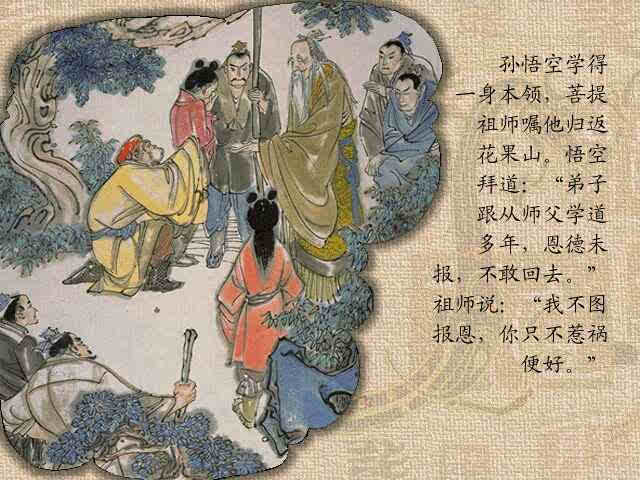 孙悟空学得
一身本领，菩提
祖师嘱他归返
花果山。悟空
拜道：“弟子
跟从师父学道
多年，恩德未
报，不敢回去。”
祖师说：“我不图
报恩，你只不惹祸
便好。”